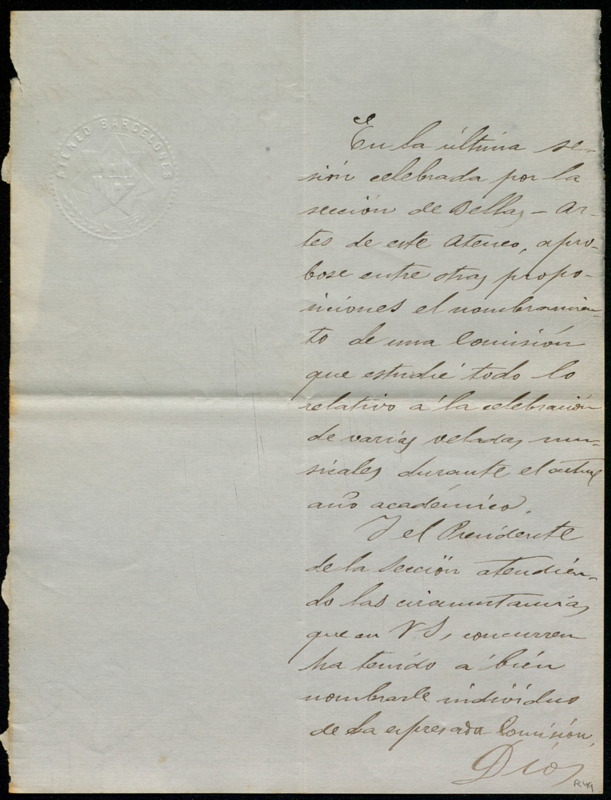 ATENEO BARCELONÉS
En la última se-
sión celebrada por la
sección de Bellas-Ar-
tes de este Ateneo, apro-
bose entre otras propo-
siciones el nombramien-
to de una Comisión
que estudie todo lo
relativo á la celebración
de varias veladas mu-
sicales durante el actual
año académico.
Y el Presidente
de la Sección atendien-
do las circunstancias
que en V S, concurren
ha tenido á bien
nombrarle individuo
de la espresada Comisión,
Dios
R.49